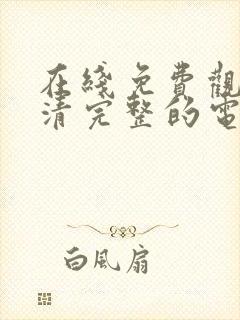 在綫免費觀
清完整的電
白風扇